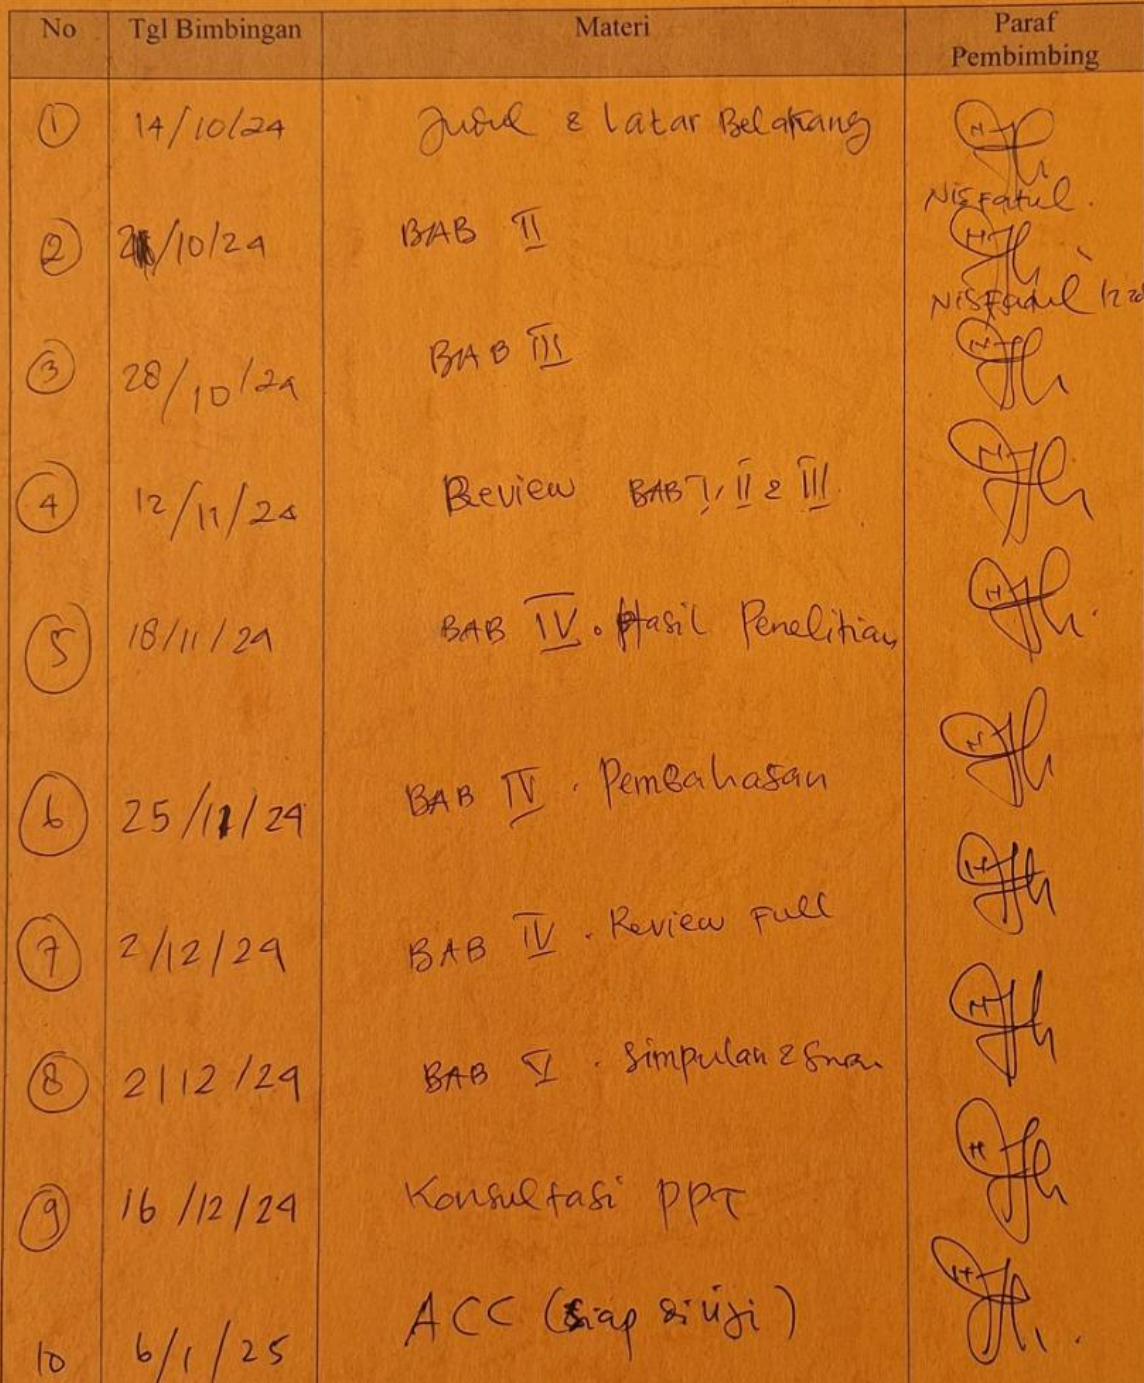 No Tgl Bimbingan Materi Paraf
Pembimbing
1 14/10/24 Judul & Latar Belakang
Nisfatul.
2 21/10/24 BAB II
Nisfatul
3 28/10/24 BAB III
4 12/11/24 Review BAB I, II & III.
5 18/11/24 BAB IV. Hasil Penelitian
6 25/11/24 BAB IV. Pembahasan
7 2/12/24 BAB IV. Review Full
8 2/12/24 BAB V. Simpulan & Saran
9 16/12/24 Konsultasi PPT
10 6/1/25 ACC (siap diuji)